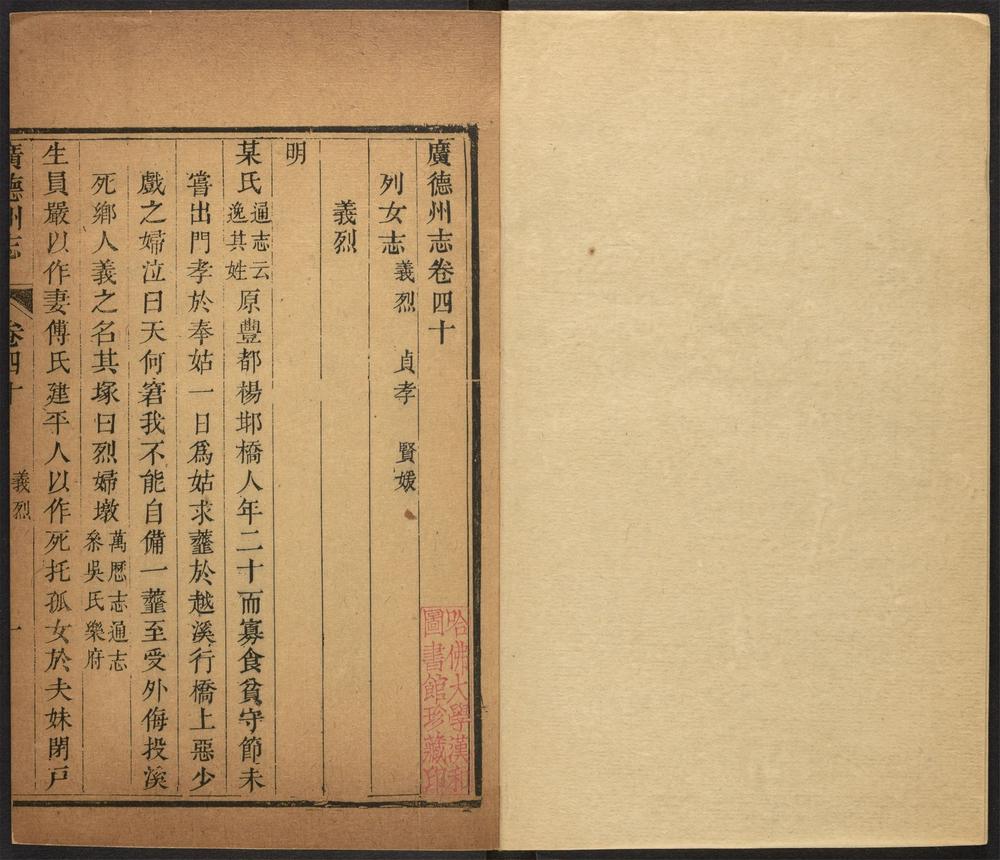 廣德州志卷四十
列女志 義烈 貞孝 賢媛
義烈
明
某氏 通志云 逸其姓 原豐都楊邶橋人年二十而寡食貧守節未
嘗出門孝於奉姑一日爲姑求虀於越溪行橋上惡少
戲之婦泣曰天何窘我不能自備一虀至受外侮投溪
死鄉人義之名其塚曰烈婦墩 萬歷志通志 叅吳氏樂府
生員嚴以作妻傅氏建平人以作死托孤女於夫妹閉戸
廣德州志 卷四十 義烈 一
哈佛大學漢和
圖書館珍藏印